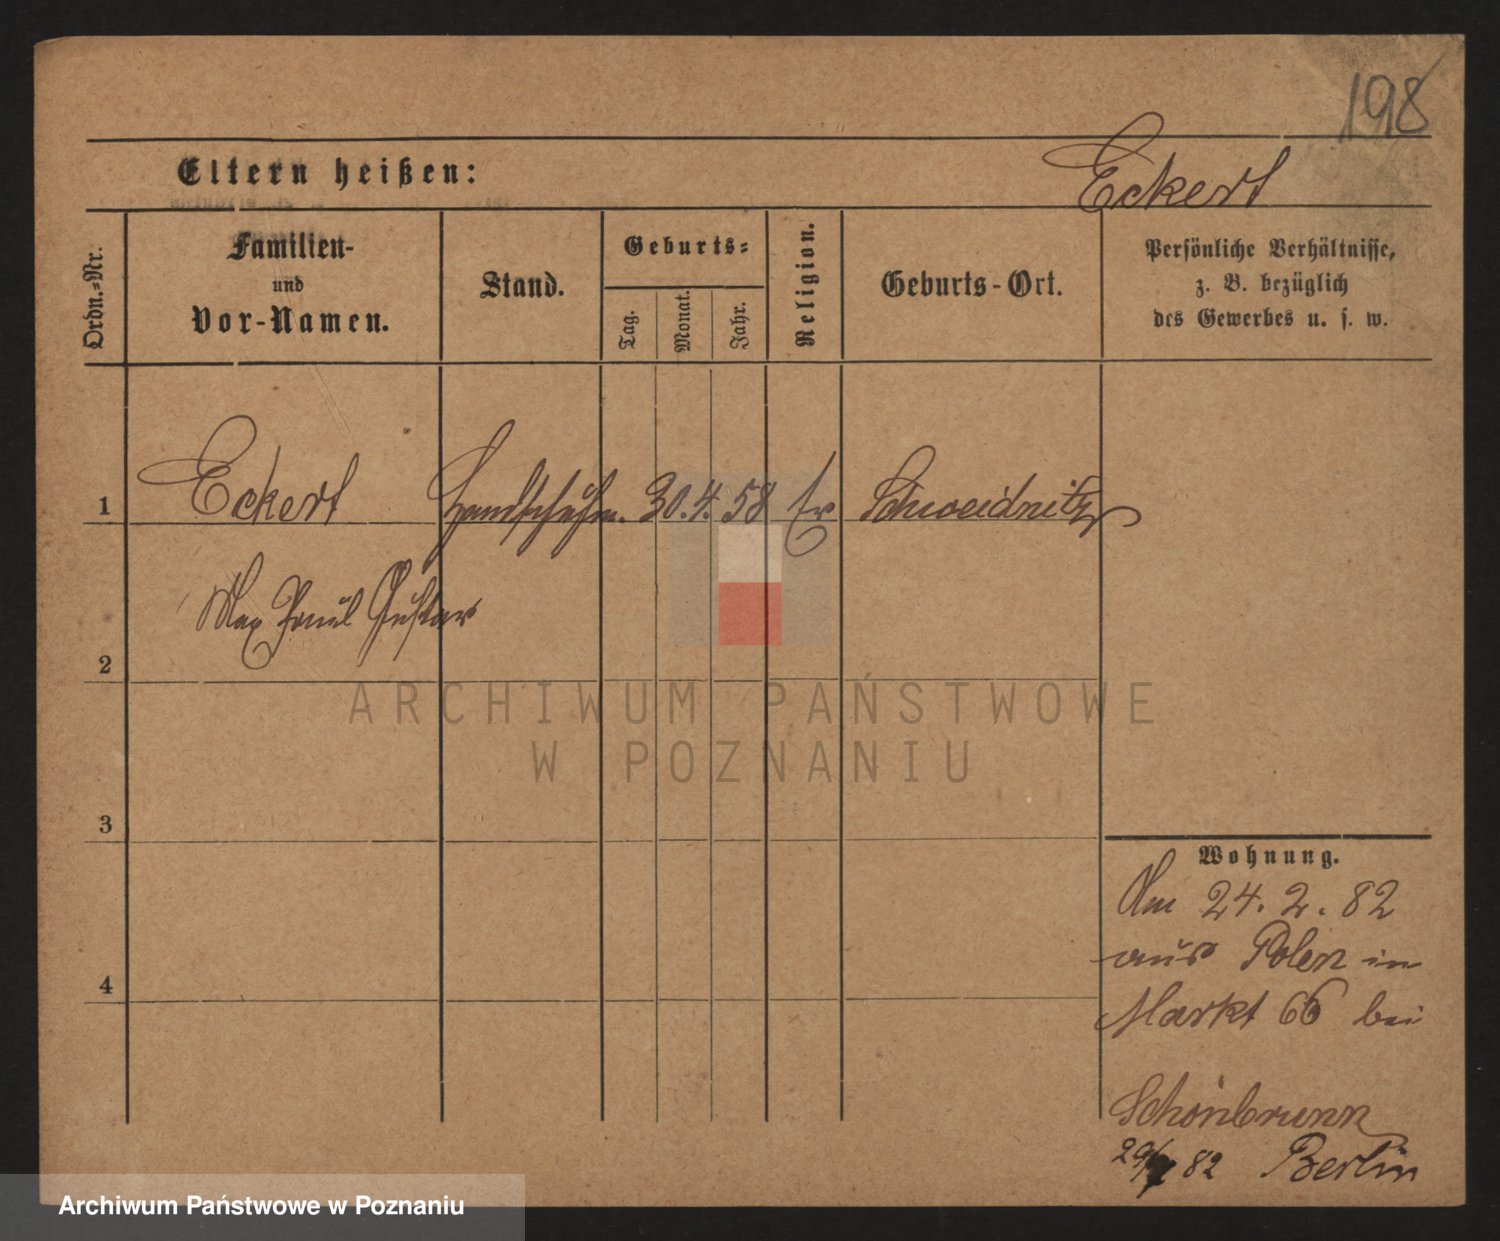 198
Eltern heißen:
Eckert
Ordn.-Nr.
Familien-
und
Vor-Namen.
Stand.
Geburts-
Tag.
Monat.
Jahr.
Religion.
Geburts-Ort.
Persönliche Verhältnisse,
z. B. bezüglich
des Gewerbes u. s. w.
1 Eckert Handschuhm. 30. 4. 58 Ev Schweidnitz
Max Paul Gustav
2
ARCHIWUM PAŃSTWOWE
W POZNANIU
3
Wohnung.
Am 24. 2. 82
aus Polen in
4
Markt 66 bei
Schönbrunn
82 Berlin
Archiwum Państwowe w Poznaniu